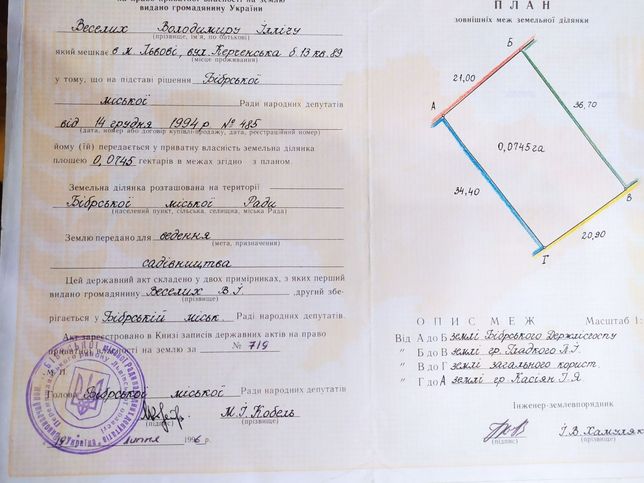 на право приватної власності на землю
видано громадянину України
Веселих Володимиру Іллічу
(прізвище, ім'я, по батькові)
який мешкає в м. Львові, вул. Керченська б. 13 кв. 89
(місце проживання)
у тому, що на підставі рішення Бібрської
міської Ради народних депутатів
від 14 грудня 1994 р. № 485
(дата, номер або договір купівлі-продажу, дата, реєстраційний номер)
йому (їй) передається у приватну власність земельна ділянка
площею 0,0745 гектарів в межах згідно з планом.
Земельна ділянка розташована на території
Бібрської міської Ради
(населений пункт, сільська, селищна, міська Рада)
Землю передано для ведення
(мета, призначення)
садівництва
Цей державний акт складено у двох примірниках, з яких перший
видано громадянину Веселих В.І. , другий збе-
(прізвище)
рігається у Бібрській міськ. Раді народних депутатів.
Акт зареєстровано в Книзі записів державних актів на право
приватної власності на землю за № 719
М. П.
Голова Бібрської міської Ради народних депутатів
М.І. Кобель
(підпис) (прізвище)
липня 1996 р.
ПЛАН
зовнішніх меж земельної ділянки
Б
21,00
А
36,70
0,0745 га
34,40
В
20,90
Г
ОПИС МЕЖ Масштаб 1:
Від А до Б землі Бібрського Держлісгоспу
" Б до В землі гр. Гладкого Я.І.
" В до Г землі загального корист.
" Г до А землі гр. Касіян І.Я
Інженер-землевпорядник
(підпис) (прізвище)